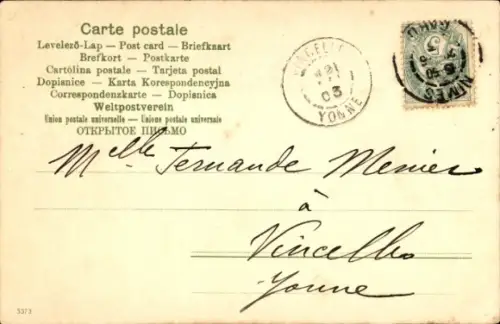 Carte postale
Levelező-Lap — Post card — Briefkaart
Brefkort — Postkarte
Cartōlina postale — Tarjeta postal
Dopisnice — Karta Korespondencyjna
Correspondenzkarte — Dopisnica
Weltpostverein
Union postale universelle — Unione postale universale
ОТКРЫТОЕ ПИСЬМО
VINCELLES
21
03
YONNE
NIMES
GARD
Melle Fernande Menier
à
Vincelles
Yonne
3373